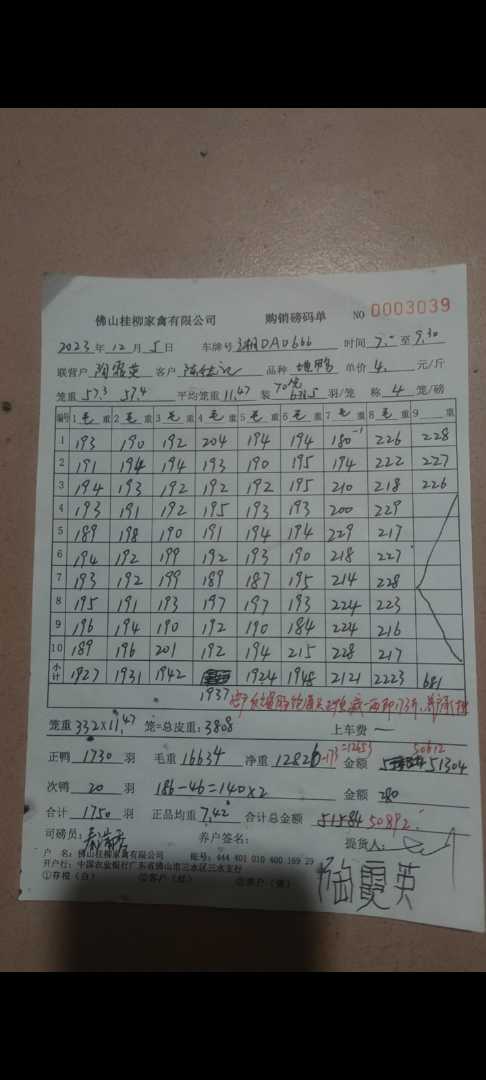 佛山桂柳家禽有限公司 购销磅码单 NO 0003039
2023年12月5日 车牌号 湘DAD666 时间 7: 至 9:30
联营户 陶霞英 客户 品种 单价 4. 元/斤
笼重 57.3 57.4 平均笼重 11.47 装 羽/笼 称 4 笼/磅
编号 1 毛 重 2 毛 重 3 毛 重 4 毛 重 5 毛 重 6 毛 重 7 毛 重 8 毛 重 9 重
1 193 190 192 204 194 194 180⁻¹ 226 228
2 191 194 194 193 190 195 194 222 227
3 194 193 192 192 192 195 210 218 226
4 193 191 192 195 193 193 200 229
5 189 198 190 191 194 194 229 217
6 194 192 199 192 193 190 218 227
7 193 192 199 189 187 195 214 228
8 195 191 193 197 197 193 224 223
9 196 194 190 192 190 184 224 216
10 189 196 201 192 194 215 228 217
小计 1927 1931 1942 1924 1948 2121 2223 681
1937
笼重 332×11.47 笼=总皮重: 3808 上车费 —
正鸭 1730 羽 毛重 16634 净重 12826 -173=12653 金额 51304 50612
次鸭 20 羽 186-46=140×2 金额 280
合计 1750 羽 正品均重 7.42 合计总金额 51584 50892
司磅员: 养户签名: 提货人:
户 名: 佛山桂柳家禽有限公司 帐号: 444 401 010 400 169 29
开户行: 中国农业银行广东省佛山市三水区三水支行
①存根(白) ②客户(红) ③养户(黄)
陶霞英